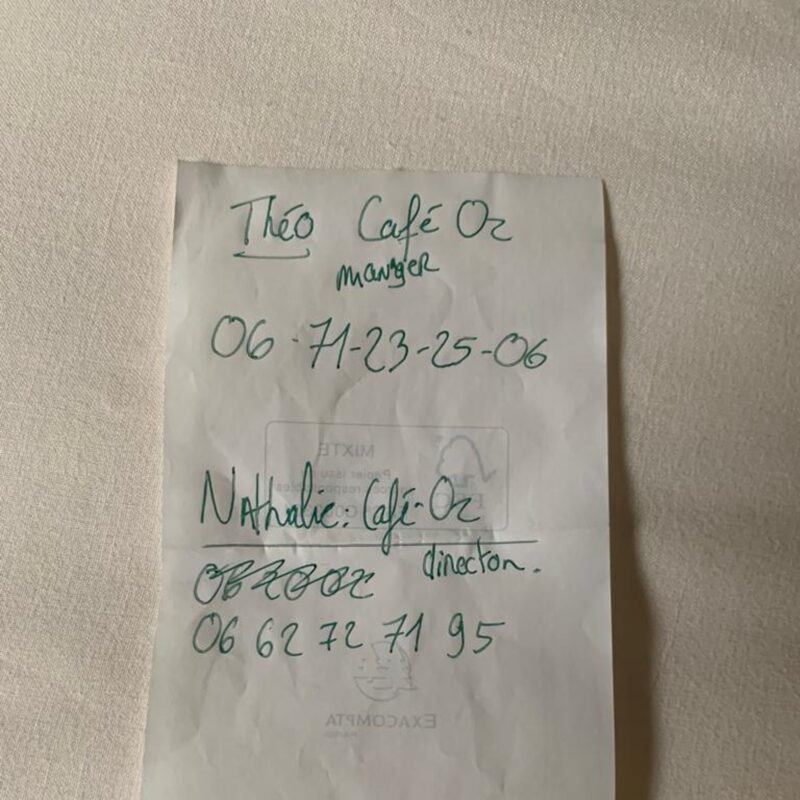 Théo Café Oz
manager
06-71-23-25-06
MIXTE
Nathalie: Café-Oz
direction.
06 62 72 71 95
EXACOMPTA